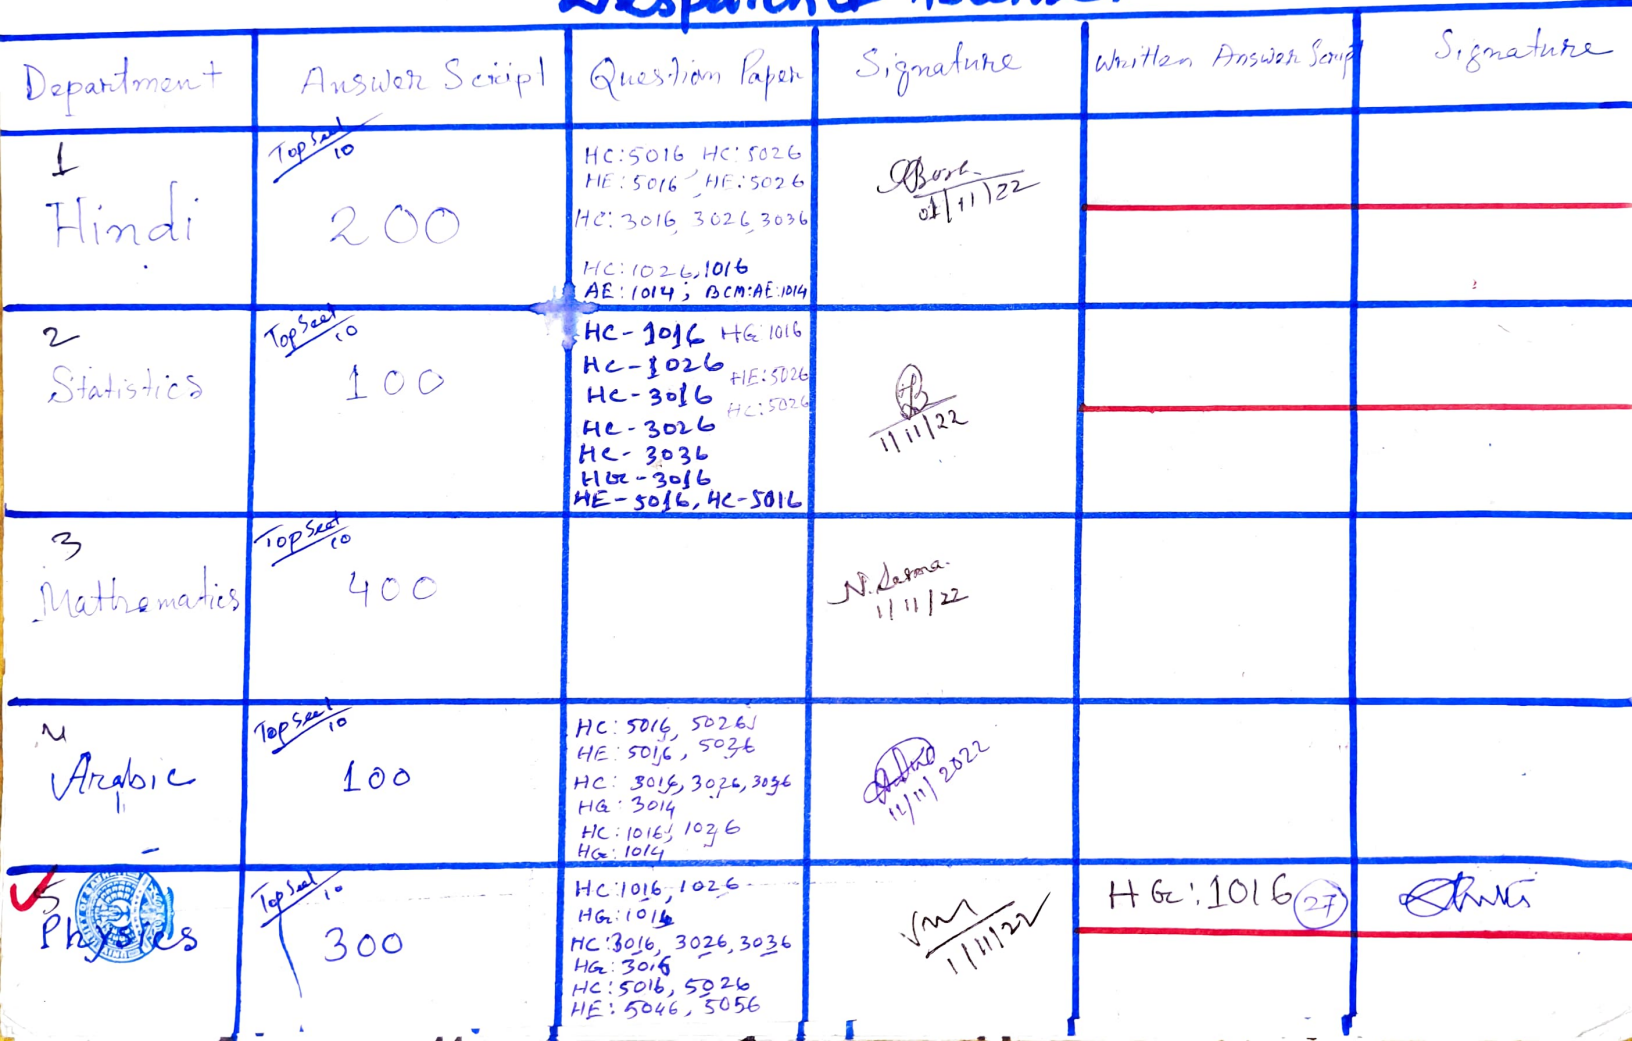 Department Answer Script Question Paper Signature Written Answer Script Signature
1
Hindi
Top Seet
10
200
HC:5016 HC:5026
HE:5016, HE:5026
HC:3016, 3026, 3036
HC:1026, 1016
AE:1014; BCM:AE:1014
01/11/22
2
Statistics
Top Seet
10
100
HC-1016 HG:1016
HC-1026
HE:5026
HC-3016
HC:5026
HC-3026
HC-3036
HG-3016
HE-5016, HC-5016
1/11/22
3
Mathematics
Top Seet
10
400
N. Sarma.
1/11/22
4
Arabic
Top Seet
10
100
HC: 5016, 5026
HE: 5016, 5036
HC: 3016, 3026, 3036
HG: 3014
HC: 1016, 1026
HG: 1014
11/11/2022
5
Physics
Top Seet
10
300
HC:1016, 1026
HG:1016
HC:3016, 3026, 3036
HG:3016
HC:5016, 5026
HE:5046, 5056
1/11/22
HG:1016 27